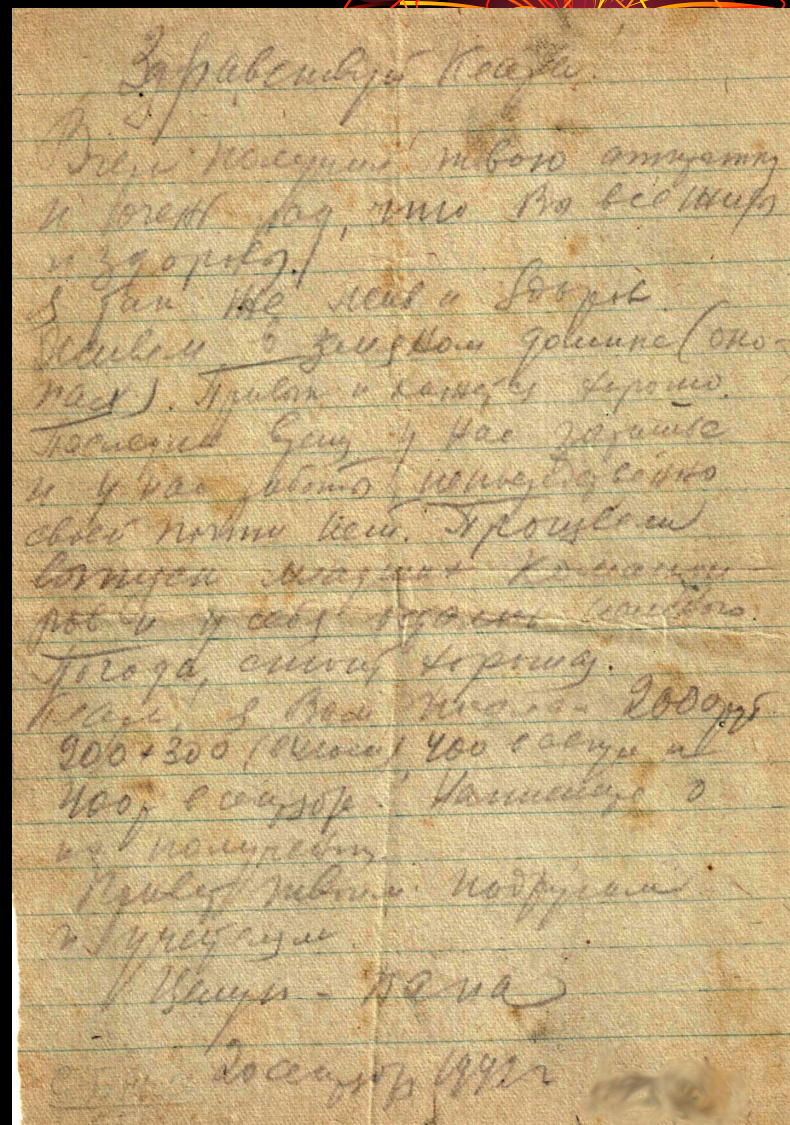 Здравствуй Клара.
Вчера получил твою открытку
и очень рад, что Вы все живы
и здоровы.
Я так же жив и здоров.
Живем в земляном домике (око-
пах). Привык и кажется хорошо.
Последнее у нас затишье
и у нас работы непосредственно
своей почти нет. Произвели
выпуск младших команди-
ров и у себя
Погода стоит хорошая.
Клара, я Вам выслал 2000 руб
900+300 400 в август и
400 р в сентябре. Напишите о
их получении.
Привет твоим подругам
и
Целую - папа
20 сентября 1942 г